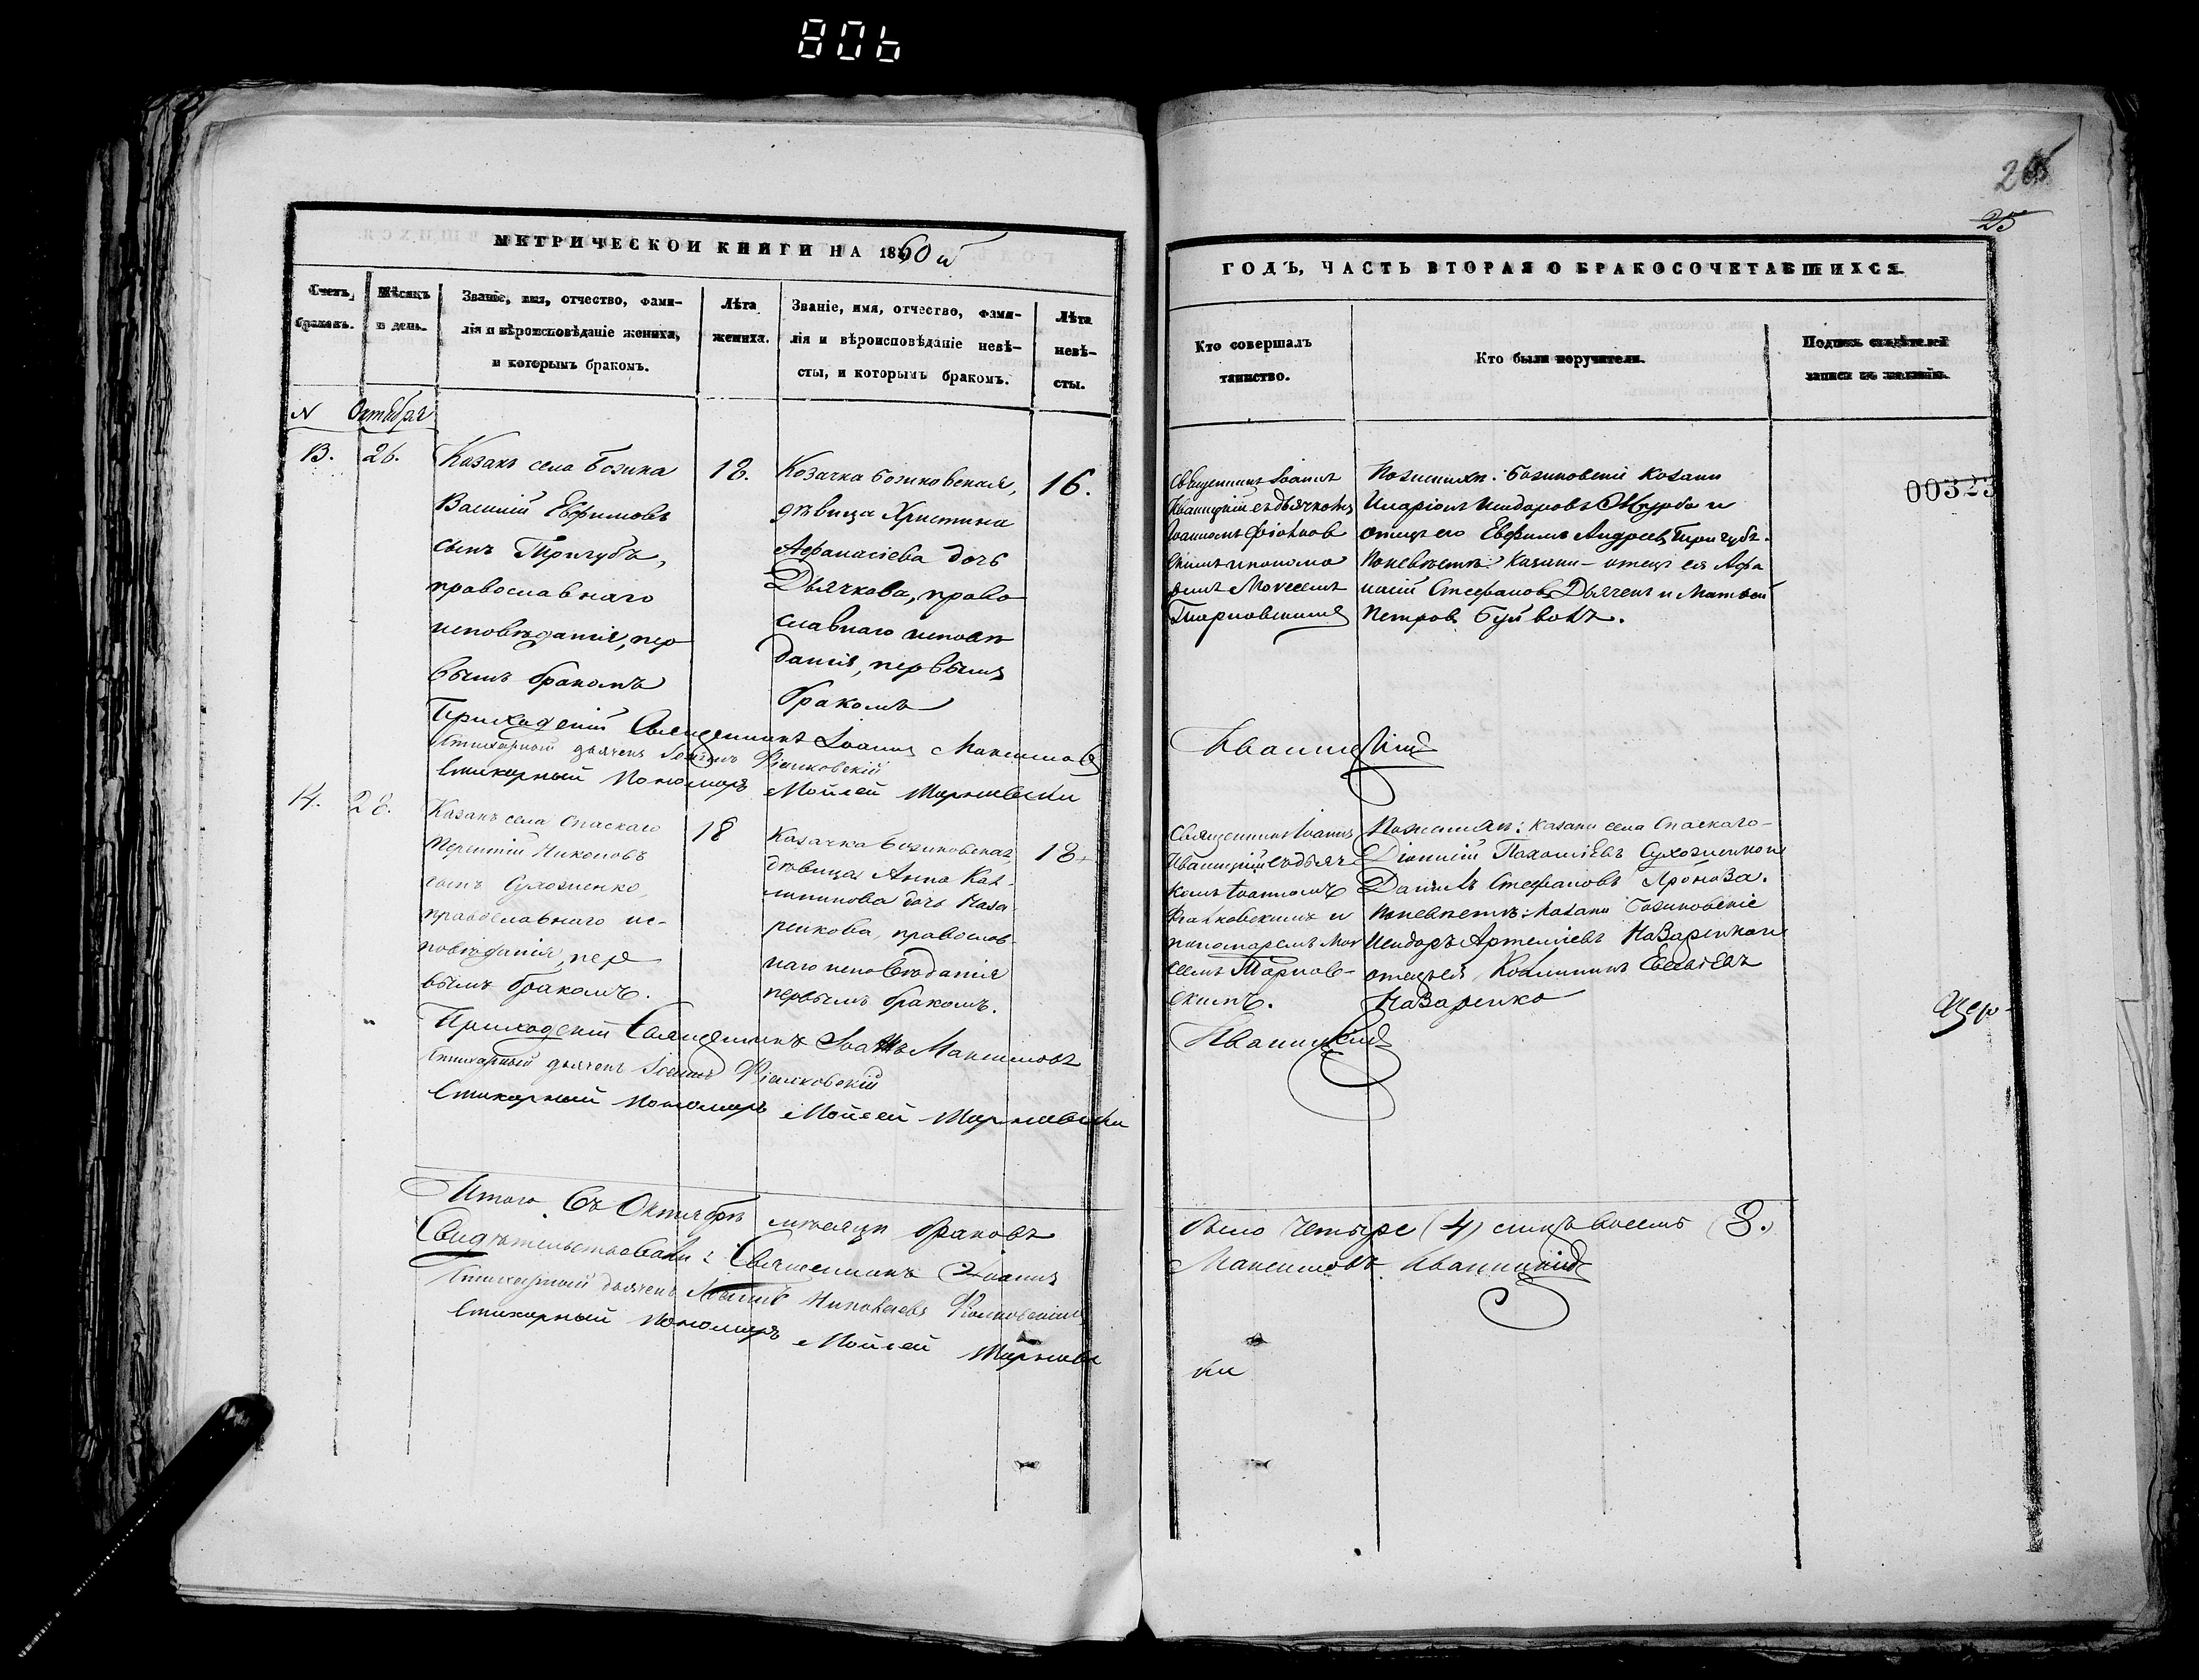 806
26
25
МЕТРИЧЕСКОЙ КНИГИ НА 1860й
ГОДЪ, ЧАСТЬ ВТОРАЯ О БРАКОСОЧЕТАВШИХСЯ
Счетъ браковъ.
Мѣсяцъ и день.
Званіе, имя, отчество, фами-
лія и вѣроисповѣданіе жениха,
и которымъ бракомъ.
Лѣта
жениха.
Званіе, имя, отчество, фами-
лія и вѣроисповѣданіе невѣ-
сты, и которымъ бракомъ.
Лѣта
невѣ-
сты.
Кто совершалъ
таинство.
Кто были поручители.
Подпись свидѣтелей
записи по желанію.
N Октябрь
13. 26.
Казакъ села
Василій Евфимовъ
сынъ Тригубъ,
православнаго
исповѣданія, пер
вымъ бракомъ
18.
Козачка
дѣвица Христина
Афанасіева дочь
Дьячкова, право
славнаго исповѣ
данія, первымъ
бракомъ
16.
Священникъ Іоаннъ
Иваницкій съ дьячкомъ
Іоанномъ
и понома
ремъ Моѵсеемъ
Тарновскимъ
По женихѣ: казаки
Иларіонъ Исидоровъ и
отецъ его Евфимъ Андреевъ Тригубъ.
По невѣстѣ: Казаки - отецъ ея Афа
насій Стефановъ Дьяченк и Матвей
Петровъ
00323
Приходскій Священникъ Іоаннъ Максимовъ
Иваницкій
Стихарный дьячекъ Іоаннъ
Стихарный Пономарь Мойсей Тарновски
14. 28.
Казакъ села Спаскаго
Терентій Никоновъ
сынъ Сухоменко,
православнаго ис-
повѣданія, пер
вымъ бракомъ.
18
Казачка
дѣвица Анна Кал-
линикова дочь Наза
ренкова, православ-
наго исповѣданія
первымъ бракомъ.
18
Священникъ Іоаннъ
Иваницкій съ дьяч
комъ Іоанномъ
и
пономаремъ Моѵ
сеемъ Тарнов-
скимъ.
По женихѣ: казаки села Спаскаго -
Діонисій Пахоміевъ Сухоменко и
Даніилъ Стефановъ
По невѣстѣ: Казаки
Исидоръ Артеміевъ Назаренко и
отецъ ея Каллиникъ
Назаренко
Цер-
Приходскій Священникъ Іоаннъ Максимовъ
Иваницкій
Стихарный дьячекъ Іоаннъ
Стихарный Пономарь Мойсей Тарновски
Итого въ Октябрѣ мѣсяцѣ браковъ
было четыре (4) лицъ восемь (8.)
Свидѣтельствовали: Священникъ Іоаннъ
Максимовъ Иваницкій
Стихарный дьячекъ Іоаннъ Николаевъ
Стихарный Пономарь Мойсей Тарновс
ки